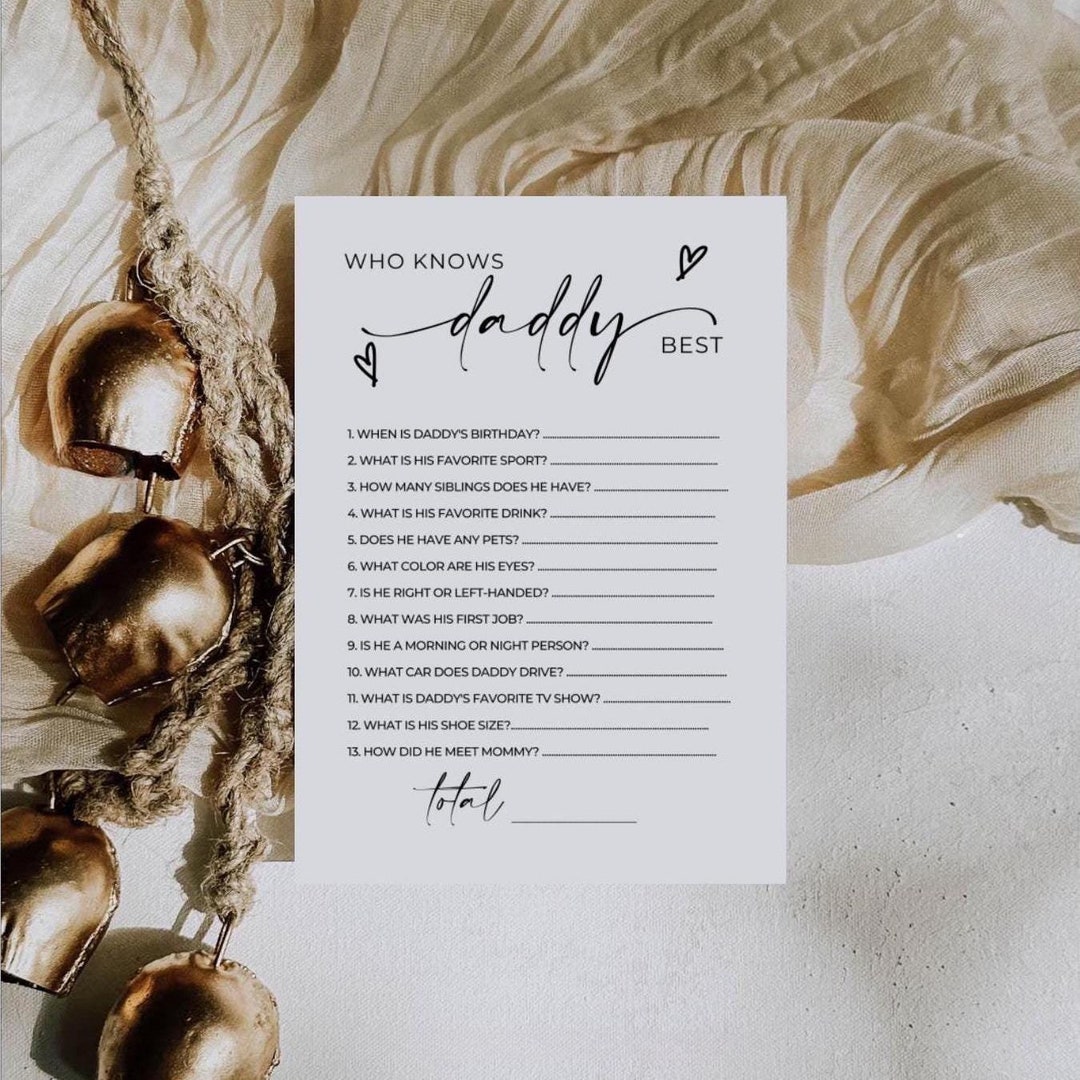 WHO KNOWS
daddy
BEST
1. WHEN IS DADDY'S BIRTHDAY?
2. WHAT IS HIS FAVORITE SPORT?
3. HOW MANY SIBLINGS DOES HE HAVE?
4. WHAT IS HIS FAVORITE DRINK?
5. DOES HE HAVE ANY PETS?
6. WHAT COLOR ARE HIS EYES?
7. IS HE RIGHT OR LEFT-HANDED?
8. WHAT WAS HIS FIRST JOB?
9. IS HE A MORNING OR NIGHT PERSON?
10. WHAT CAR DOES DADDY DRIVE?
11. WHAT IS DADDY'S FAVORITE TV SHOW?
12. WHAT IS HIS SHOE SIZE?
13. HOW DID HE MEET MOMMY?
total